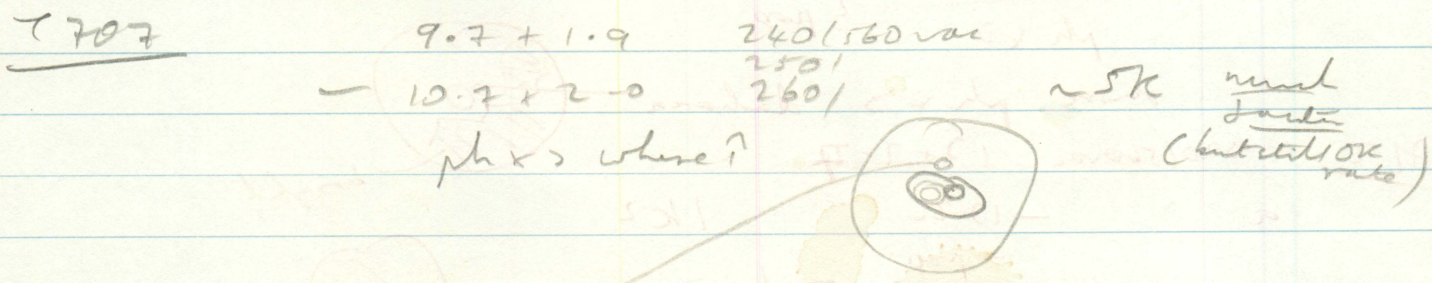 707 9.7 + 1.9 240/560 vac
250/
— 10.7 + 2.0 260/ ~5K much
faster
ph x > where ↑ (but still OK
rate)